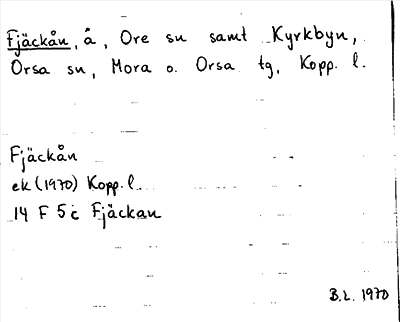 Fjäckån, å, Ore sn samt Kyrkbyn,
Orsa sn, Mora o. Orsa tg, Kopp. l.
Fjäckån
ek (1970) Kopp. l.
14 F 5 c Fjäckan
B.L. 1970